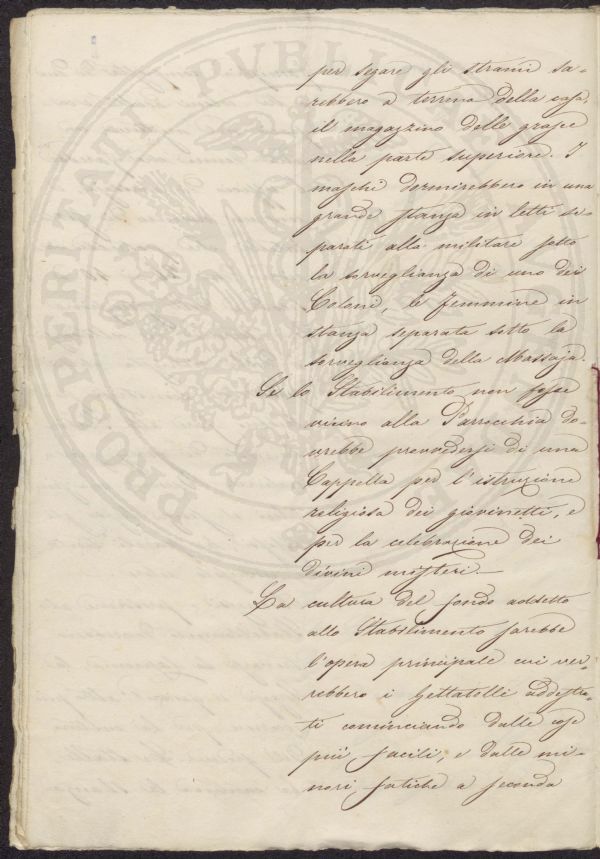 per segare gli strami sa-
rebbero a terreno della casa,
il magazzino delle grasce
nella parte superiore. I
maschi dormirebbero in una
grande stanza in letti se-
parati alla militare sotto
la sorveglianza di uno dei
Coloni, le femmine in
stanza separata sotto la
sorveglianza della Massaja.
Se lo Stabilimento non fosse
vicino alla Parrocchia do-
vrebbe provvedersi di una
Cappella per l'istruzione
religiosa dei giovinetti, e
per la celebrazione dei
divini misteri.—
La cultura del fondo addetto
allo Stabilimento sarebbe
l'opera principale cui ver-
rebbero i Gettatelli addestra-
ti cominciando dalle cose
più facili, e dalle mi-
nori fatiche a seconda
PROSPERITATI PVBLICAE